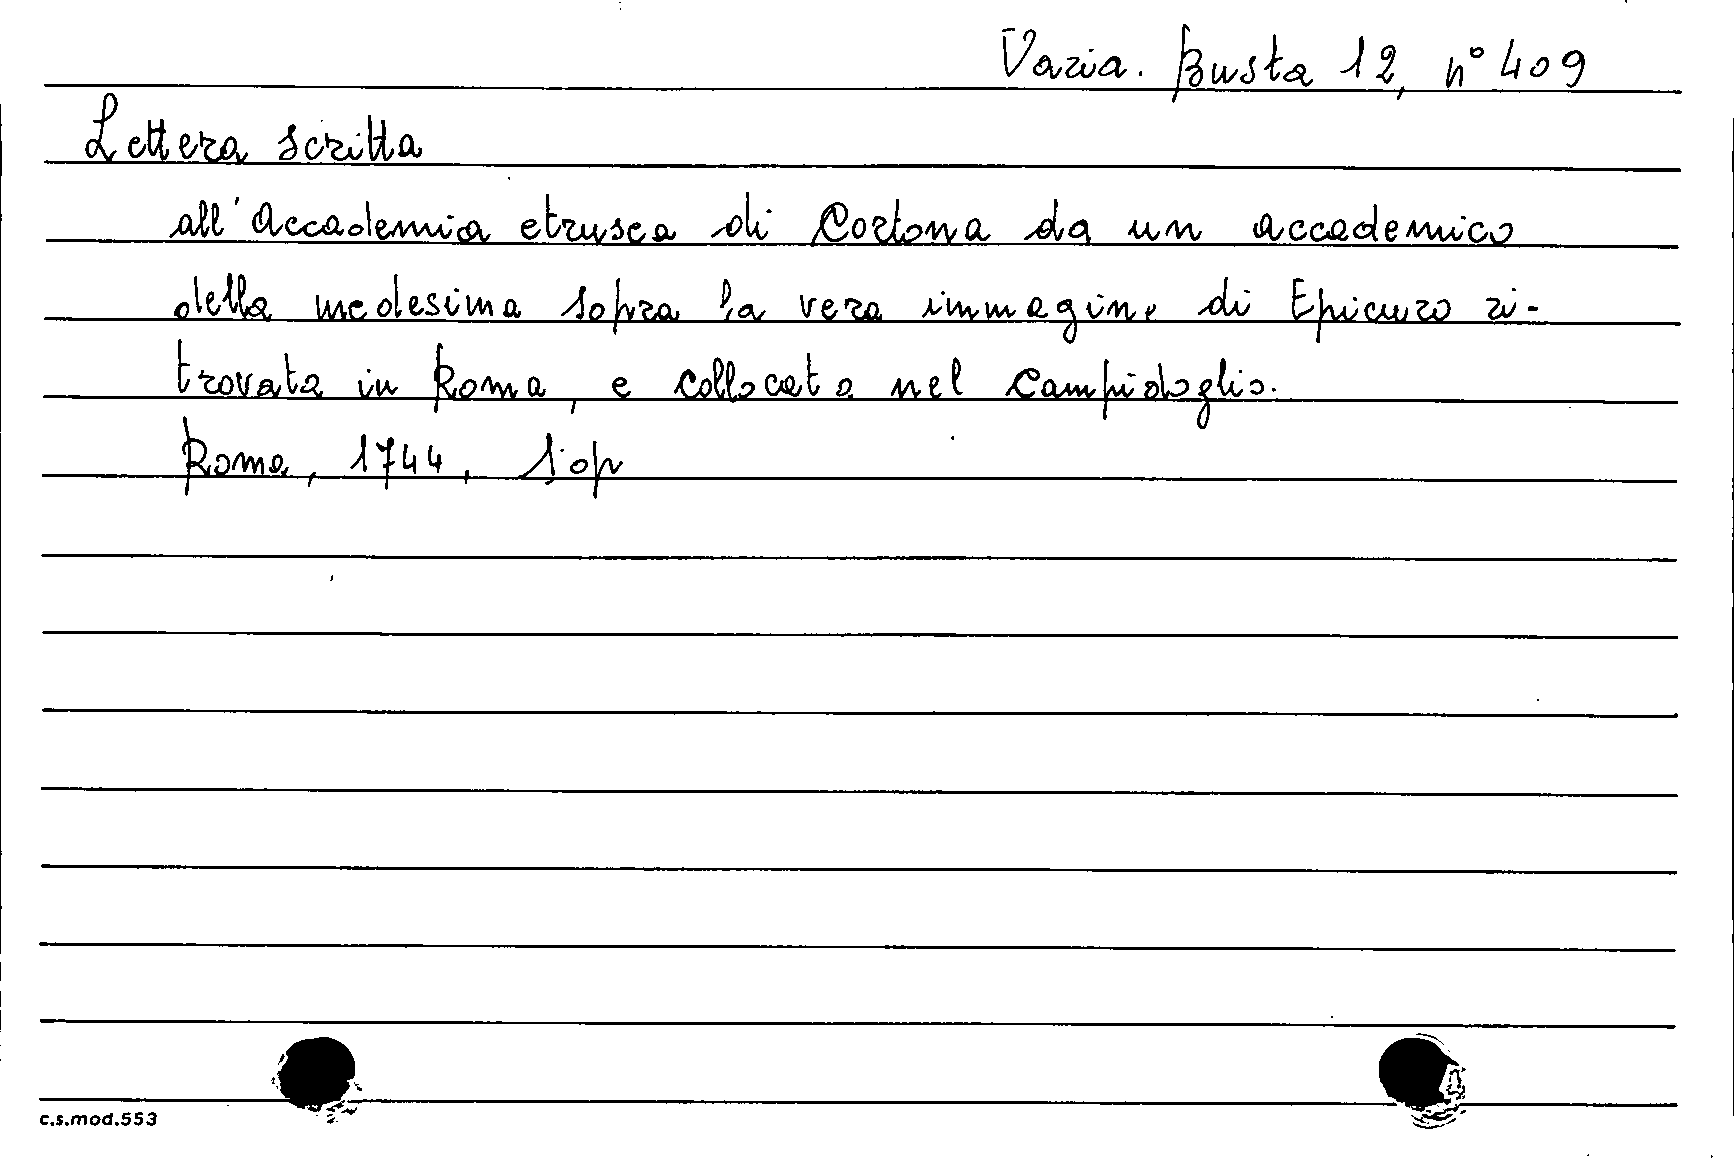 Varia. Busta 12, n° 409
Lettera scritta
all'Accademia etrusca di Cortona da un accademico
della medesima sopra la vera immagine di Epicuro ri-
trovata in Roma, e collocata nel Campidoglio.
Roma, 1744, 1 op
c.s.mod.553